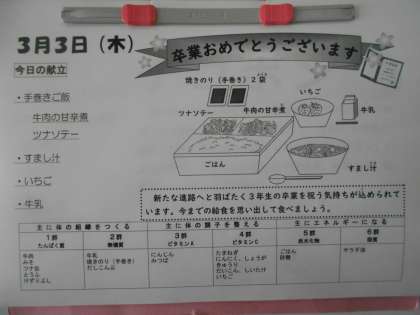 3月3日(木)
卒業おめでとうございます
今日の献立
焼きのり(手巻き)2袋
いちご
・手巻きご飯
牛肉の甘辛煮
ツナソテー
・すまし汁
・いちご
・牛乳
ツナソテー
牛肉の甘辛煮
牛乳
ごはん
すまし汁
新たな進路へと羽ばたく3年生の卒業を祝う気持ちが込められて
います。今までの給食を思い出して食べましょう。
主に体の組織をつくる
主に体の調子を整える
主にエネルギーになる
1群
たんぱく質
2群
無機質
3群
ビタミンA
4群
ビタミンC
5群
炭水化物
6群
脂質
牛肉
みそ
ツナ缶
とうふ
けずりぶし
牛乳
焼きのり(手巻き)
だしこんぶ
にんじん
みつば
たまねぎ
にんにく、しょうが
きゅうり
だいこん、しいたけ
いちご
ごはん
砂糖
サラダ油